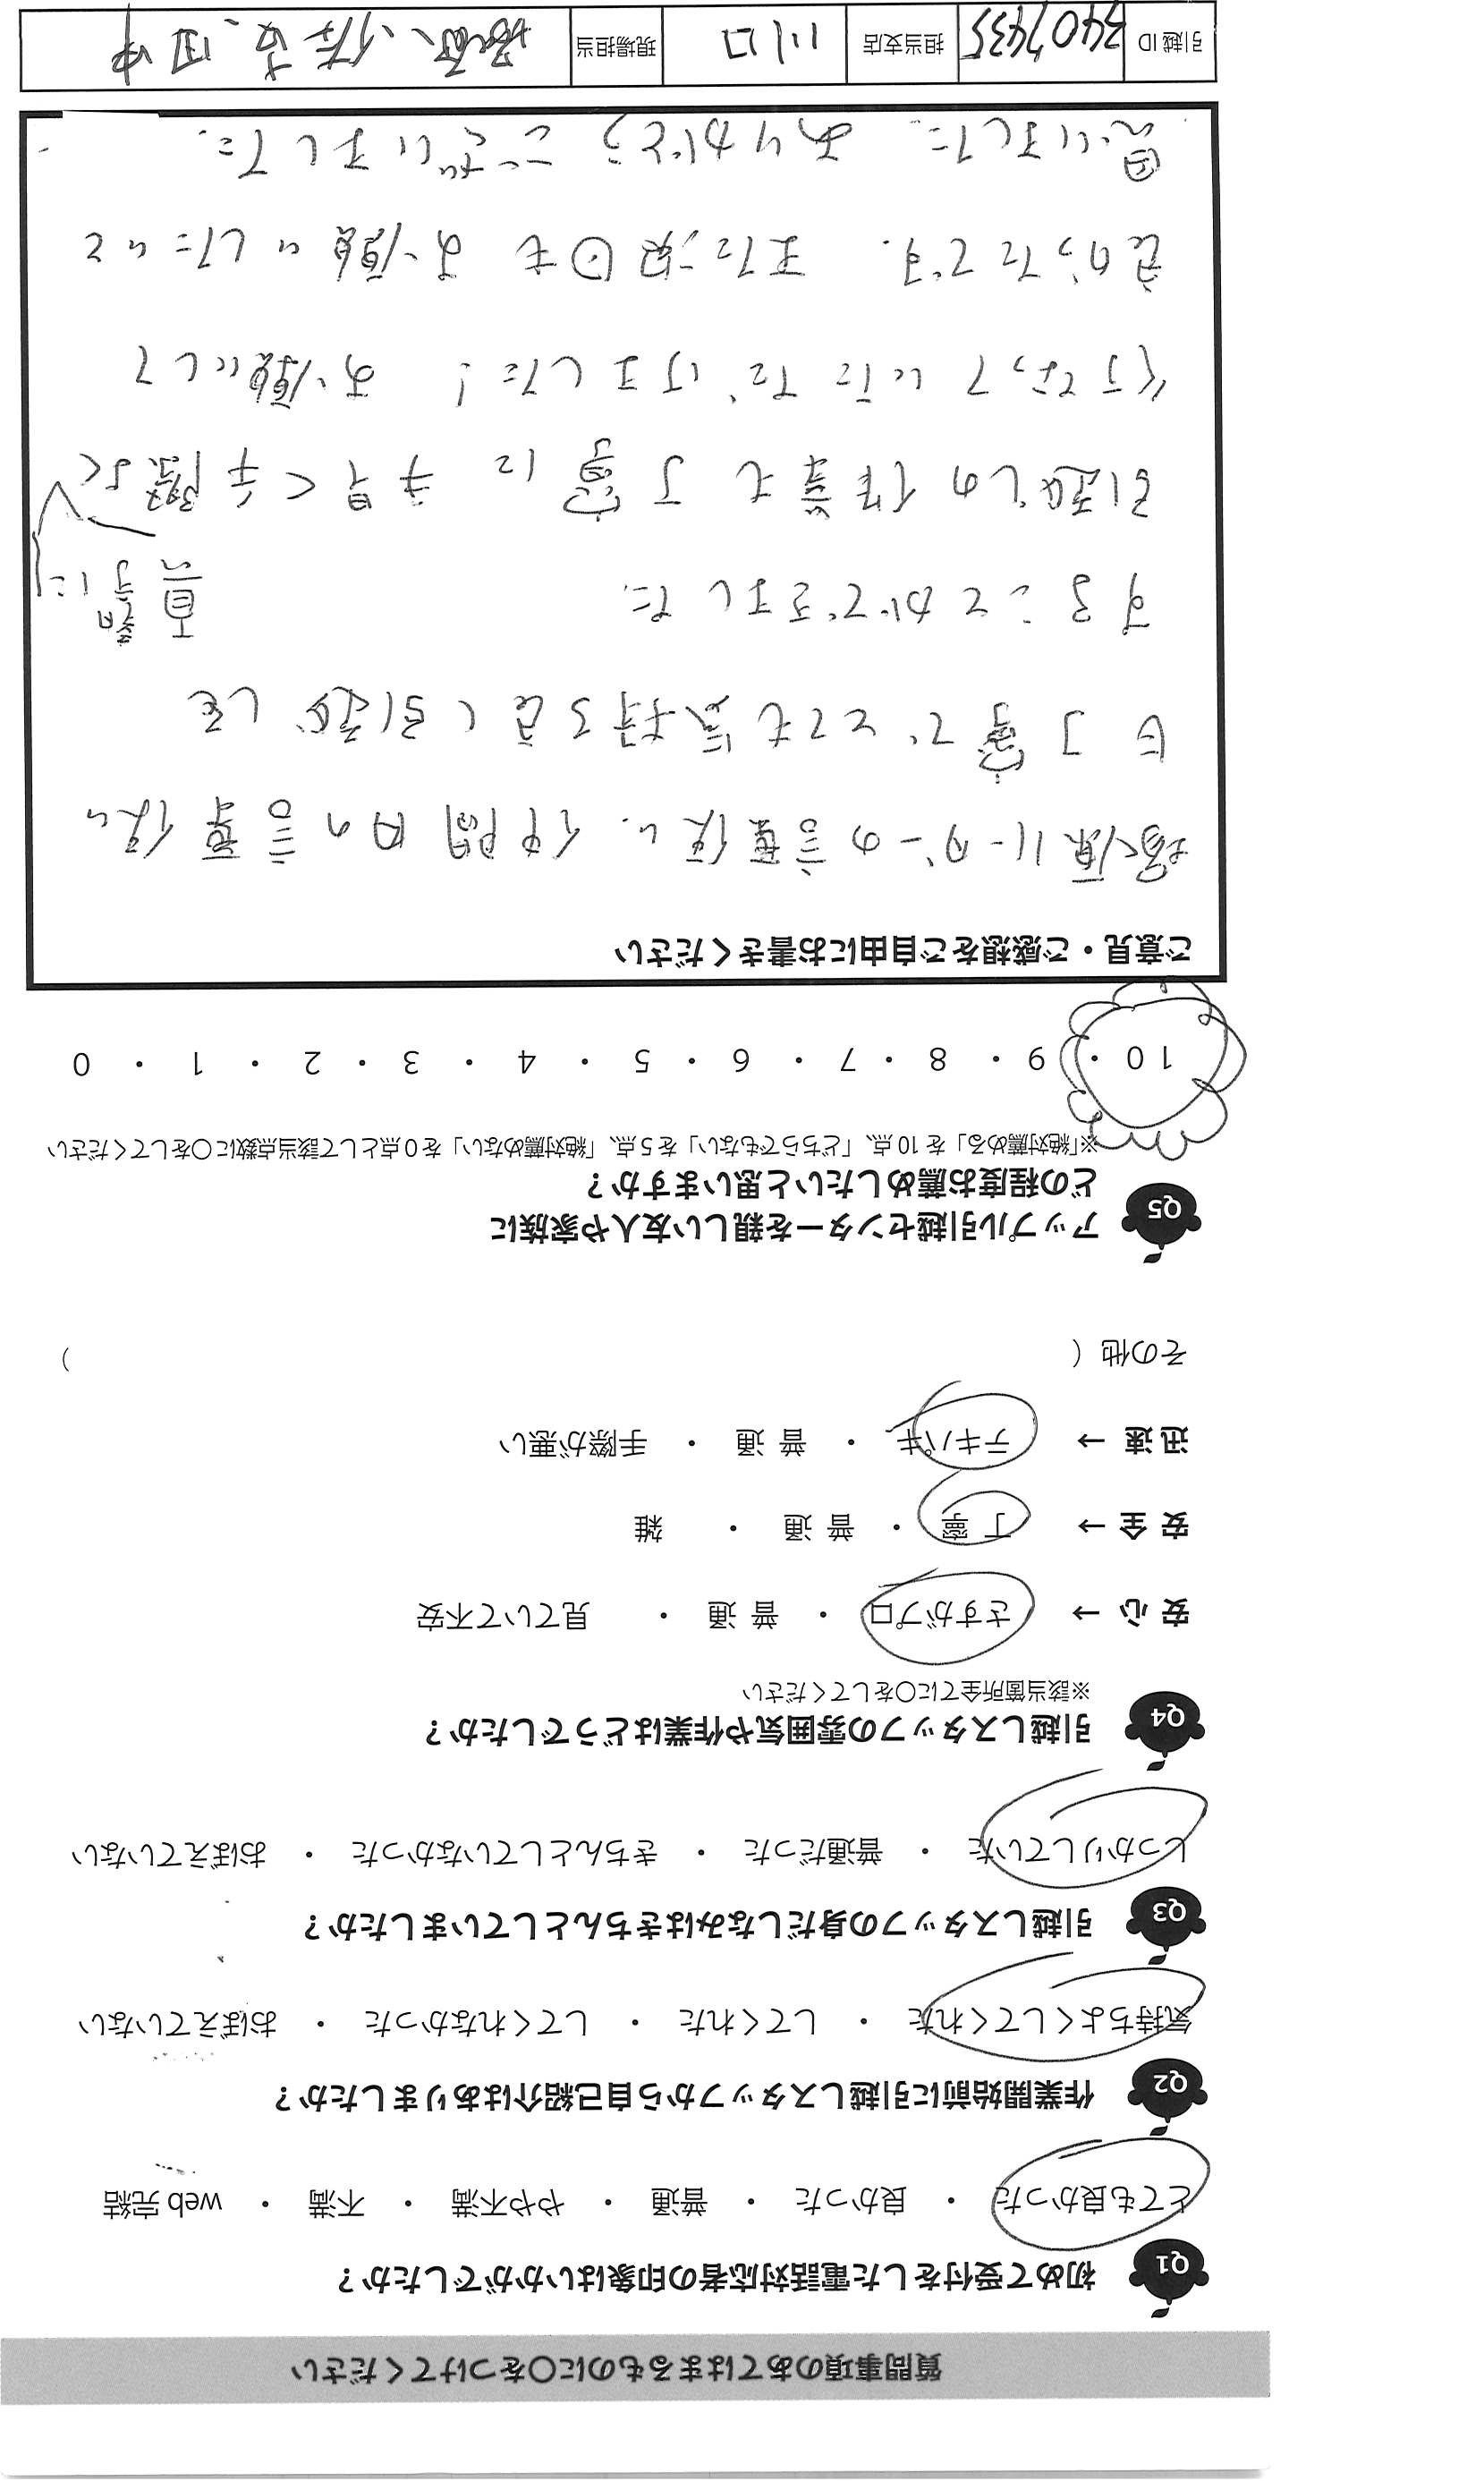 質問事項のあてはまるものに○をつけてください
Q1 初めて受付をした電話対応者の印象はいかがでしたか？
とても良かった ・ 良かった ・ 普通 ・ やや不満 ・ 不満 ・ web 完結
Q2 作業開始前に引越しスタッフから自己紹介はありましたか？
気持ちよくしてくれた ・ してくれた ・ してくれなかった ・ おぼえていない
Q3 引越しスタッフの身だしなみはきちんとしていましたか？
しっかりしていた ・ 普通だった ・ きちんとしていなかった ・ おぼえていない
Q4 引越しスタッフの雰囲気や作業はどうでしたか？
※該当箇所全てに○をしてください
安 心 → さすがプロ ・ 普 通 ・ 見ていて不安
安 全 → 丁 寧 ・ 普 通 ・ 雑
迅 速 → テキパキ ・ 普 通 ・ 手際が悪い
その他（ ）
Q5 アップル引越センターを親しい友人や家族に
どの程度お薦めしたいと思いますか？
※「絶対薦める」を 10 点、「どちらでもない」を 5 点、「絶対薦めない」を 0 点として該当点数に○をしてください
10 ・ 9 ・ 8 ・ 7 ・ 6 ・ 5 ・ 4 ・ 3 ・ 2 ・ 1 ・ 0
ご意見・ご感想をご自由にお書きください
塚原リーダーの言葉使い、仲間内の言葉使い
も丁寧でとても気持ち良く引越しを
することができました
真摯に
引越しの作業も丁寧に手早く手際よく
行なっていただけました！ お願いして
良かったです。 また次回もお願いしたいと
思いました ありがとうございました。
引越 ID 3407435 担当支店 川口 現場担当 塚原、佐吉、田中